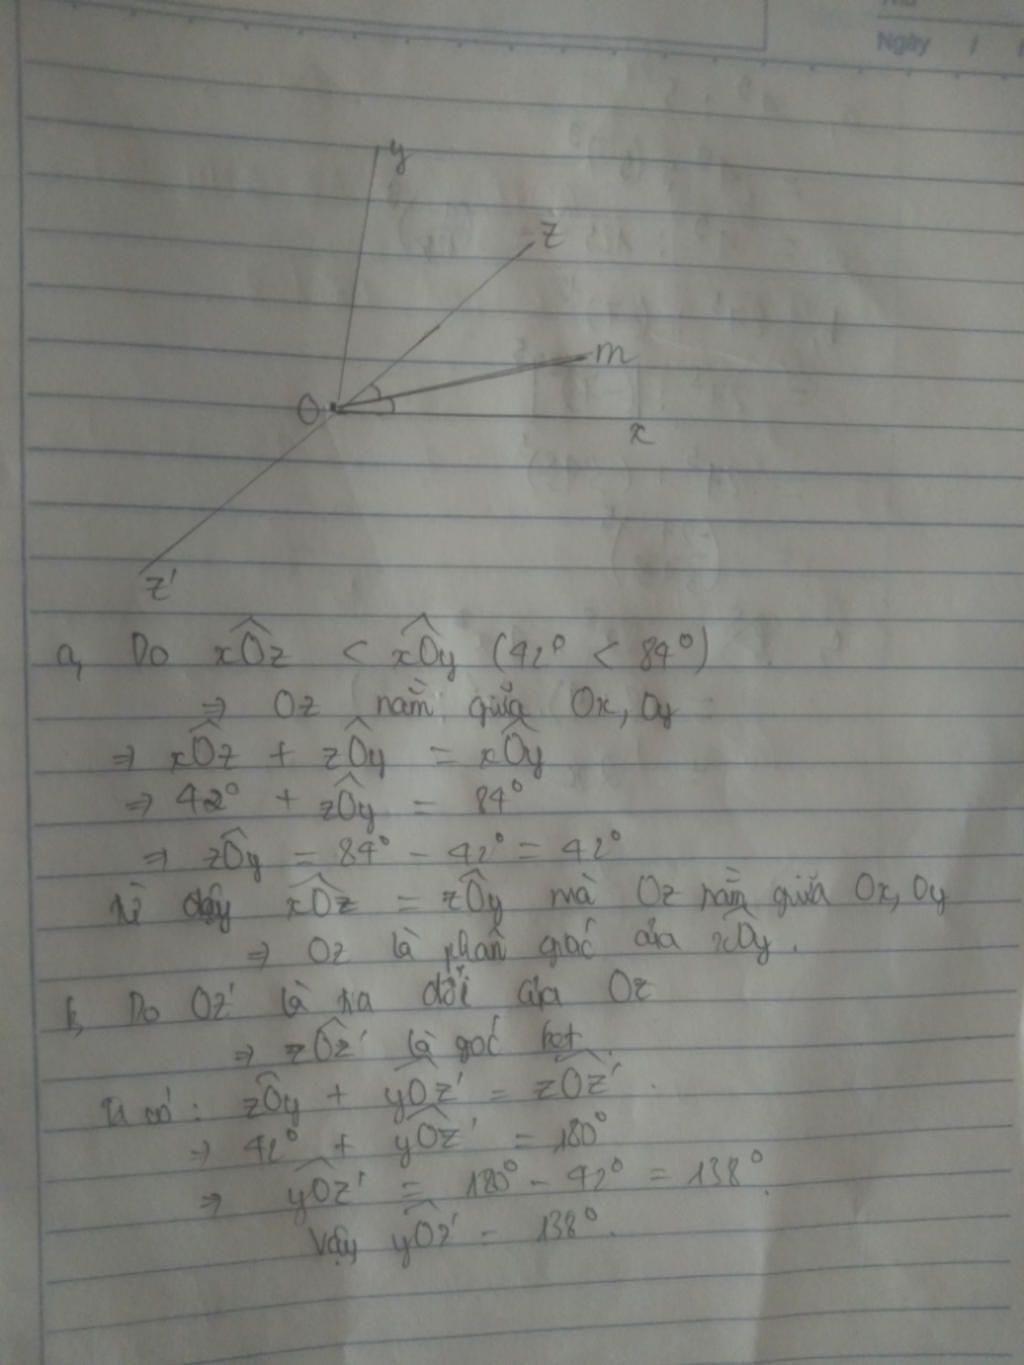 Ngày / /
y
z
m
O
x
z'
a, Do xÔz < xÔy (42° < 84°)
⇒ Oz nằm giữa Ox, Oy
⇒ xÔz + zÔy = xÔy
⇒ 42° + zÔy = 84°
⇒ zÔy = 84° - 42° = 42°
Vì xÔz = zÔy mà Oz nằm giữa Ox, Oy
⇒ Oz là phân giác của xÔy.
b, Do Oz' là tia đối của Oz
⇒ zÔz' là góc bẹt
Ta có: zÔy + yÔz' = zÔz'.
⇒ 42° + yÔz' = 180°
⇒ yÔz' = 180° - 42° = 138°.
Vậy yÔz' = 138°.